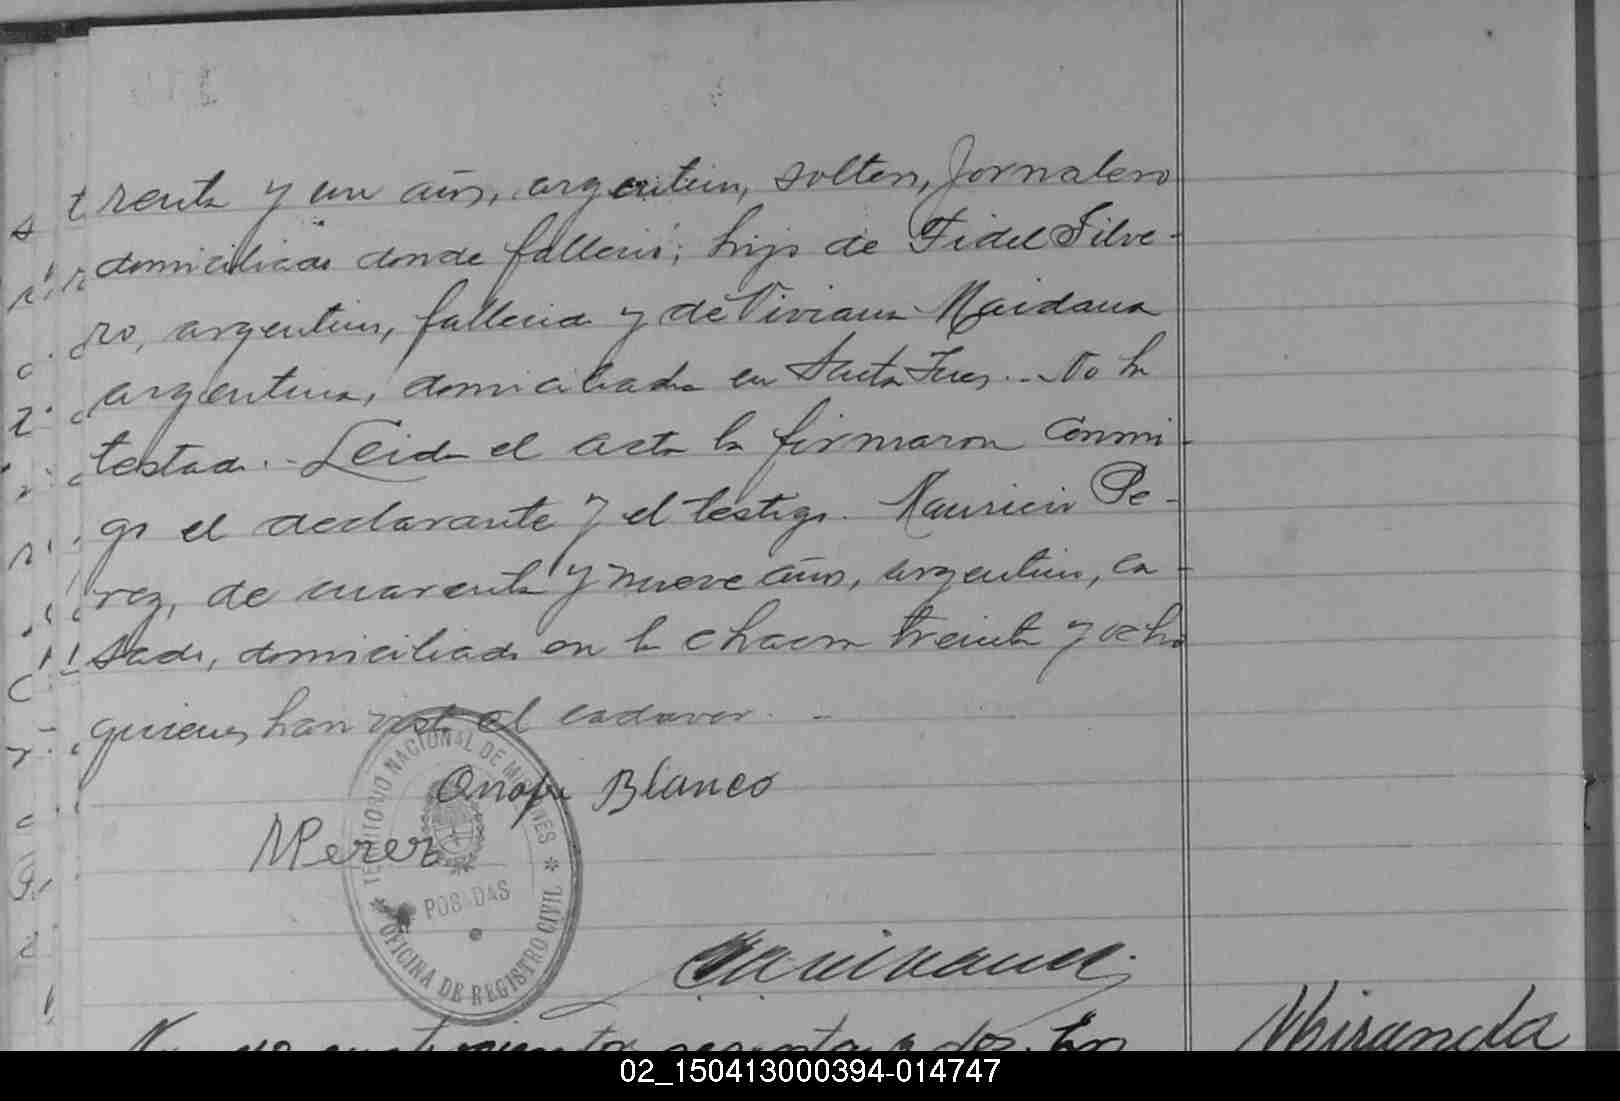 treinta y un años, argentino, soltero, Jornalero
domiciliado donde falleció; hijo de Fidel Silve-
ro, argentino, fallecido y de Viviana Maidana
argentina, domiciliada en Santa Ines.- No ha
testado.- Leida el acta la firmaron conmi-
go el declarante y el testigo Mauricio Pe-
rez, de cuarenta y nueve años, argentino, ca-
sado, domiciliado en la chacra treinta y ocho
quienes han visto el cadaver. -
Onofre Blanco
MPerez
TERRITORIO NACIONAL DE MISIONES
POSADAS
OFICINA DE REGISTRO CIVIL
cuatrocientos sesenta y dos. En
Miranda
02_150413000394-014747